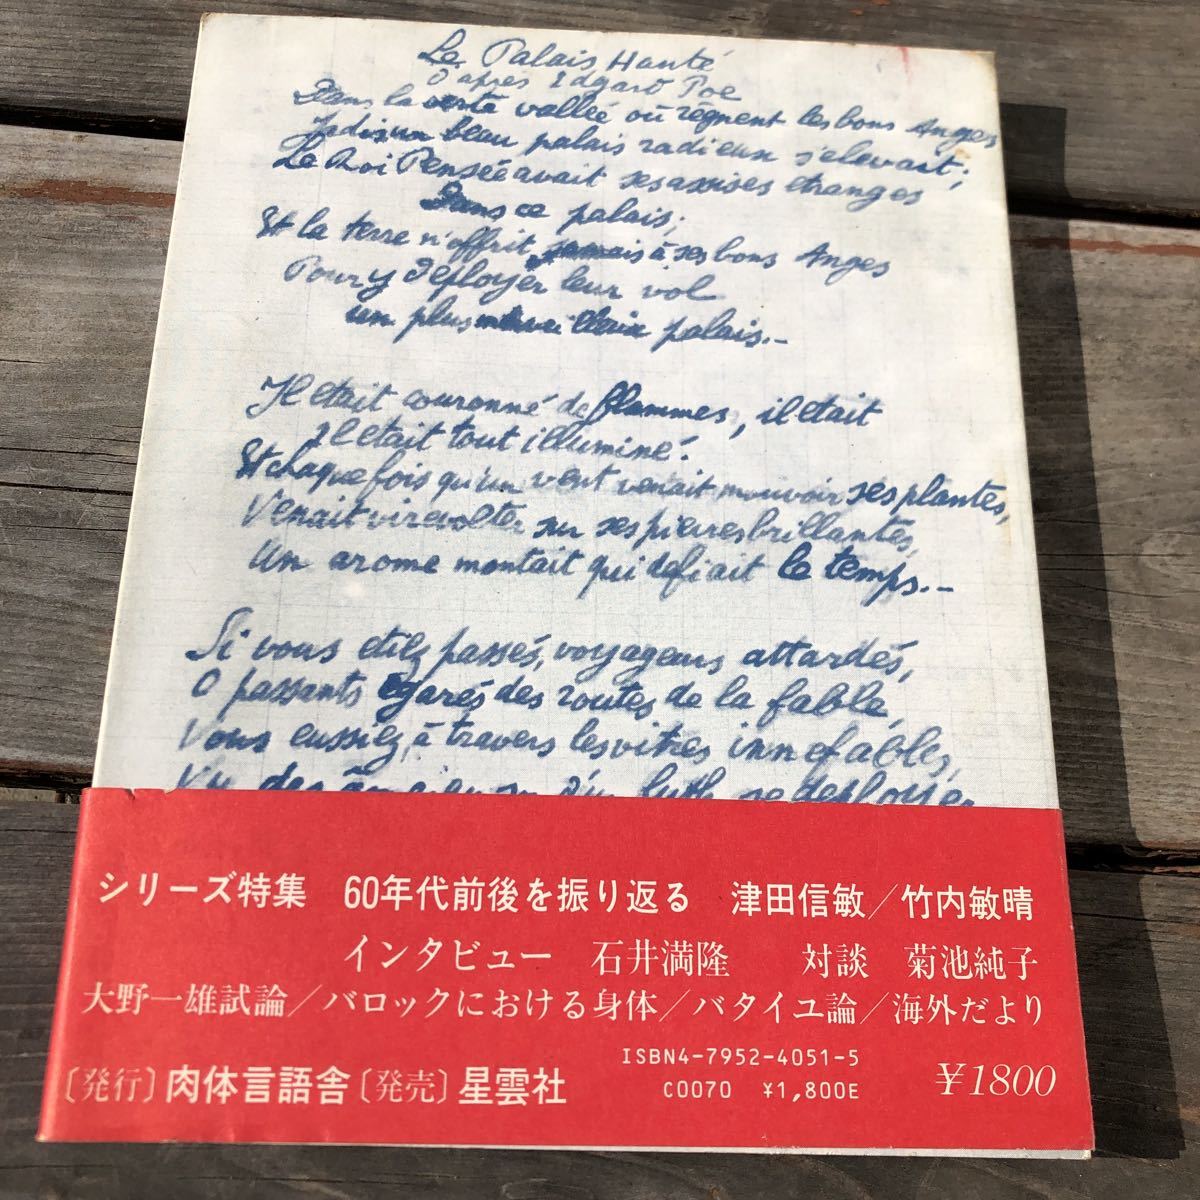 Le Palais Hanté
D'apres Edgard Poe
Dans la verte vallée où règnent les bons Anges
Jadis un beau palais radieux s'elevait;
Le Roi Pensée avait ses assises etranges
Dans ce palais;
Et la terre n'offrit jamais à ses bons Anges
Pour y deployer leur vol
un plus palais.-
Il etait couronné de flammes, il etait
Il etait tout illuminé.
Et chaque fois qu'un vent venait mouvoir ses plantes,
Venait virevolter sur ses pierres brillantes,
Un arome montait qui defiait le temps.-
Si vous etiez passés, voyageurs attardés,
O passants égarés des routes de la fable,
Vous eussiez, à travers les vitres inneffables,
Vu des d'un luth se deployer
シリーズ特集 60年代前後を振り返る 津田信敏/竹内敏晴
インタビュー 石井満隆 対談 菊池純子
大野一雄試論/バロックにおける身体/バタイユ論/海外だより
ISBN4-7952-4051-5
〔発行〕肉体言語舎〔発売〕星雲社 C0070 ¥1,800E ¥1800